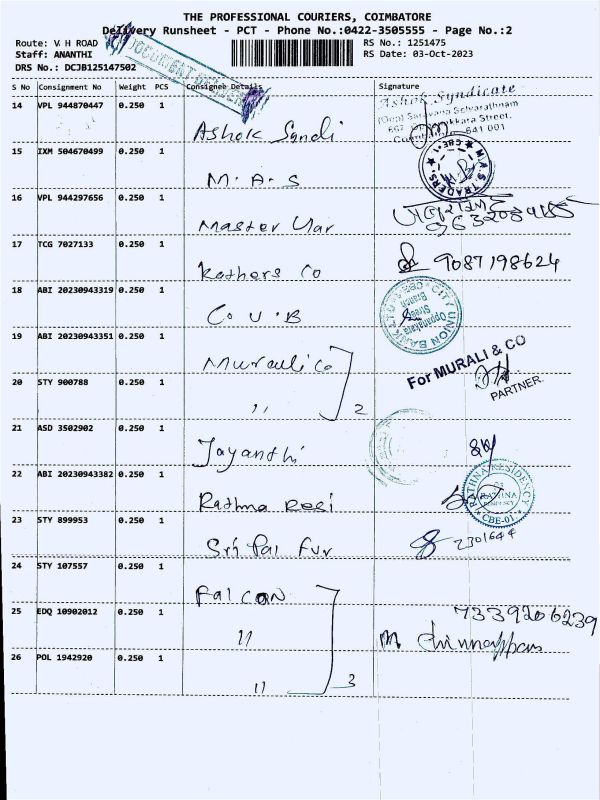 THE PROFESSIONAL COURIERS, COIMBATORE
Delivery Runsheet - PCT - Phone No.:0422-3505555 - Page No.:2
Route: V H ROAD
Staff: ANANTHI
DRS No.: DCJB125147502
RS No.: 1251475
RS Date: 03-Oct-2023
DOCUMENT
S No Consignment No Weight PCS Consignee Details Signature
14 VPL 944870447 0.250 1 Ashok Syndi
Ashok Syndicate
641 001
15 IXM 504670499 0.250 1 M.A.S
M.A.S TRADERS
16 VPL 944297656 0.250 1 Master
17 TCG 7027133 0.250 1 Kothers Co 9087198624
18 ABI 20230943319 0.250 1 C.U.B
CITY UNION BANK LTD
Oppanakara
Street
Branch
19 ABI 20230943351 0.250 1 Murali Co
For MURALI & CO
PARTNER.
20 STY 900788 0.250 1 " 2
21 ASD 3502902 0.250 1 Jayanthi
22 ABI 20230943382 0.250 1 Rathna Resi
RATHNA RESIDENCY
RATHNA
CBE-01
23 STY 899953 0.250 1 Sri Pal Fur 2301644
24 STY 107557 0.250 1 Falcon
25 EDQ 10902012 0.250 1 " 7339206239
M Chinnappan
26 POL 1942920 0.250 1 " 3